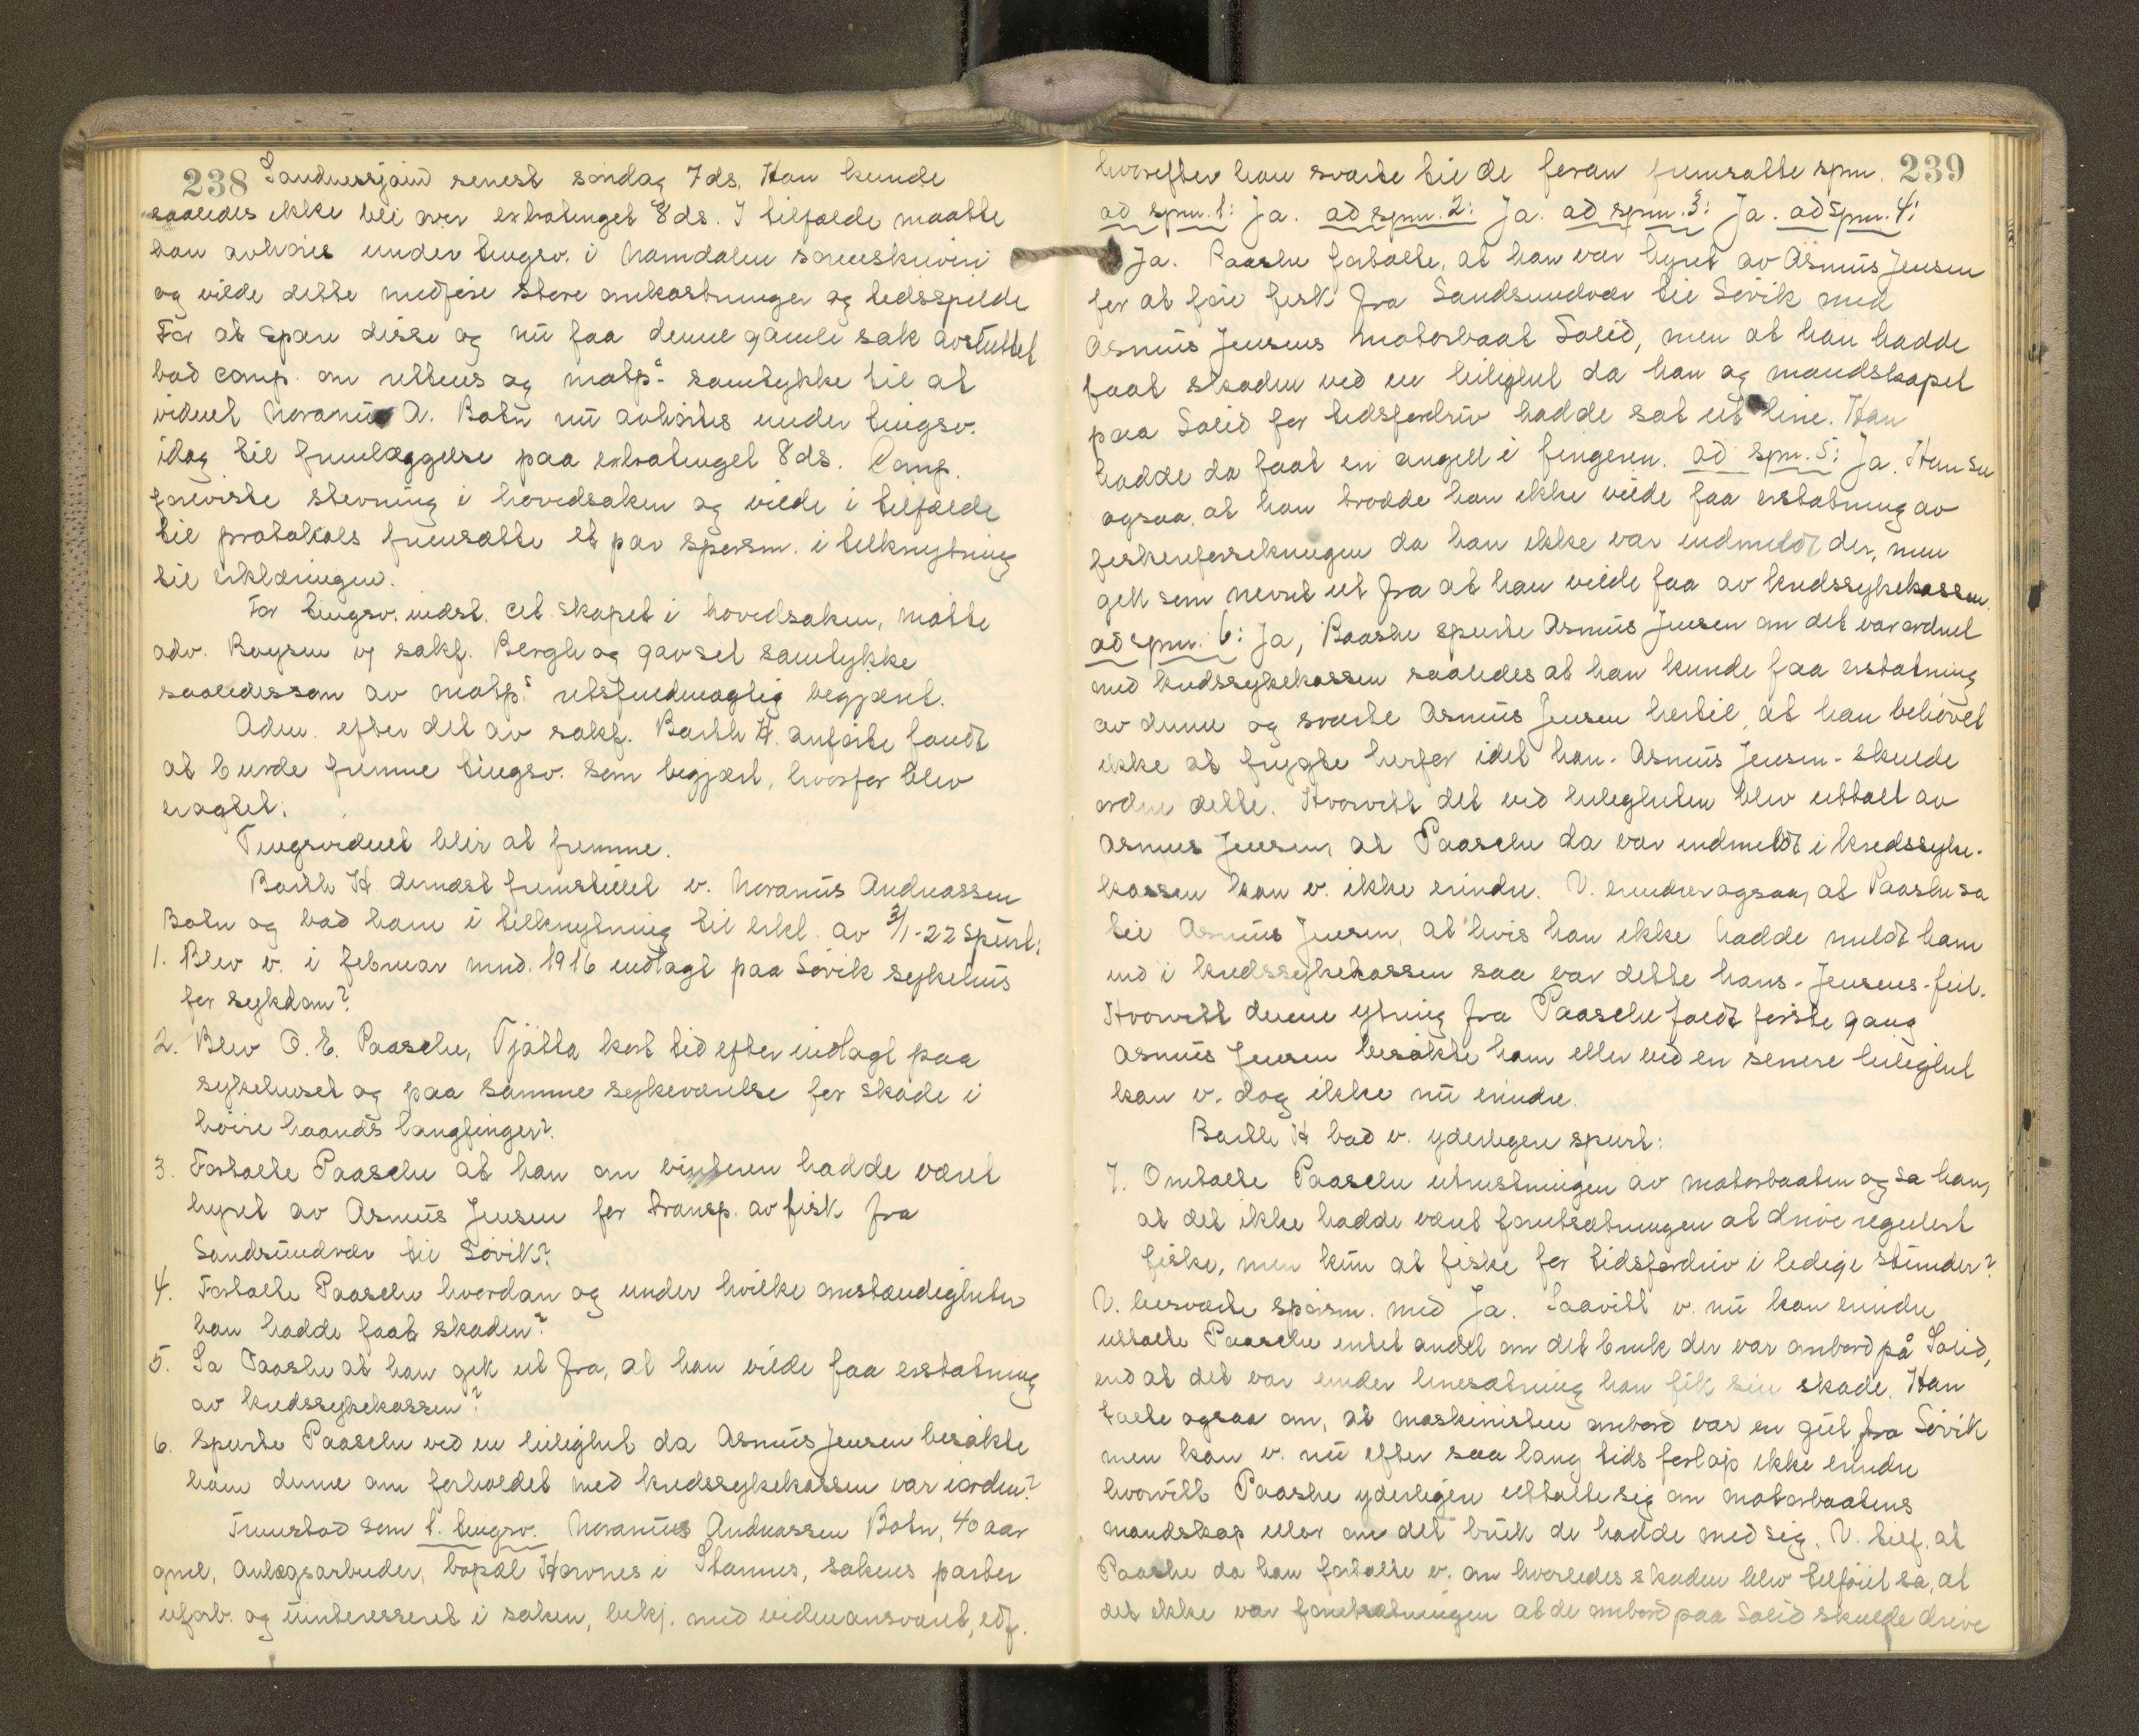 238 Sandnessjøen senest søndag 7ds. Han kunde
saaledes ikke bli over extratinget 8ds. I tilfælde maatte
han avhøres under tingsv. i Namdalen sorenskriveri
og vilde dette medføre store omkostninger og tidsspilde
For at spare disse og nu faa denne gamle sak avsluttet
bad comp. om rettens og motp.s samtykke til at
vidnet Noranus A. Botn nu avhørtes under tingsv.
idag til fremlæggelse paa extratinget 8ds. Comp.
foreviste stevning i hovedsaken og vilde i tilfælde
til protokols fremsætte et par spørsm. i tilknytning
til erklæringen.
For tingsv. indst. cit.skapet i hovedsaken, møtte
adv. Boysen v/ sakf. Bergh og gav sit samtykke
saaledessom av motp.s retsfuldmægtig begjæret.
Adm. efter det av sakf. Barth H. anførte fandt
at burde fremme tingsv. som begjært, hvorfor blev
eragtet:
Tingsvidnet blir at fremme.
Barth H. dernæst fremstillet v. Noranus Andreassen
Botn og bad ham i tilknytning til erkl. av 3/1-22 spurt:
1. Blev v. i februar mnd. 1916 indlagt paa Søvik sykehus
for sykdom?
2. Blev O. E. Paasche, Tjøtta kort tid efter indlagt paa
sykehuset og paa samme sykeværelse for skade i
høire haands langfinger?
3. Fortalte Paasche at han om vinteren hadde været
hyret av Asmus Jensen for transp. av fisk fra
Sandsundvær til Søvik?
4. Fortalte Paasche hvordan og under hvilke omstændigheter
han hadde faat skaden?
5. Sa Paasche at han gik ut fra, at han vilde faa erstatning
av kredssykekassen?
6. Spurte Paasche ved en leilighet da Asmus Jensen besøkte
ham denne om forholdet med kredssykekassen var iorden?
Fremstod som 1. tingsv. Noranus Andreassen Botn, 40 aar
gml, anlægsarbeider, bopæl Havnes i Stamnes, sakens parter
uforb. og uinteresseret i saken, bekj. med vidneansvaret, edf.
239
hvorefter han svarte til de foran fremsatte spm.
ad spm. 1: Ja. ad spm. 2: Ja. ad spm. 3: Ja. ad spm. 4:
Ja. Paashe fortalte, at han var hyret av Asmus Jensen
for at føre fisk fra Sandsundvær til Søvik med
Asmus Jensens motorbaat Solid, men at han hadde
faat skaden ved en leilighet da han og mandskapet
paa Solid for tidsfordriv hadde sat ut line. Han
hadde da faat en angel i fingeren. ad spm. 5: Ja. Han sa
ogsaa, at han trodde han ikke vilde faa erstatning av
fiskerforsikringen da han ikke var indmeldt der, men
gik som nevnt ut fra at han vilde faa av kredssykekassen.
ad spm. 6: Ja, Paashe spurte Asmus Jensen om det var ordnet
med kredssykekassen saaledes at han kunde faa erstatning
av denne og svarte Asmus Jensen hertil, at han behøvet
ikke at frygte herfor idet han - Asmus Jensen - skulde
ordne dette. Hvorvidt det ved leiligheten blev uttalt av
Asmus Jensen, at Paasche da var indmeldt i kredssyke-
kassen kan v. ikke erindre. V. erindrer ogsaa, at Paashe sa
til Asmus Jensen, at hvis han ikke hadde meldt ham
ind i kredssykekassen saa var dette hans - Jensens - feil.
Hvorvidt denne ytring fra Paasche faldt første gang
Asmus Jensen besøkte ham eller ved en senere leilighet
kan v. dog ikke nu erindre.
Barth H bad v. yderligere spurt:
7. Omtalte Paasche utrustningen av motorbaaten og sa han,
at det ikke hadde været forutsætningen at drive regulært
fiske, men kun at fiske for tidsfordriv i ledige stunder?
V. besvarte spørsm. med Ja. Saavidt v. nu kan erindre
uttalte Paasche intet andet om det bruk der var ombord på Solid,
end at det var under linesætning han fik sin skade. Han
talte ogsaa om, at maskinisten ombord var en gut fra Søvik
men kan v. nu efter saa lang tids forløp ikke erindre
hvorvidt Paashe yderligere uttalte sig om motorbaatens
mandskap eller om det bruk de hadde med sig. V. tilf. at
Paashe da han fortalte v. om hvorledes skaden blev tilføiet sa, at
det ikke var forutsætningen at de ombord paa Solid skulde drive